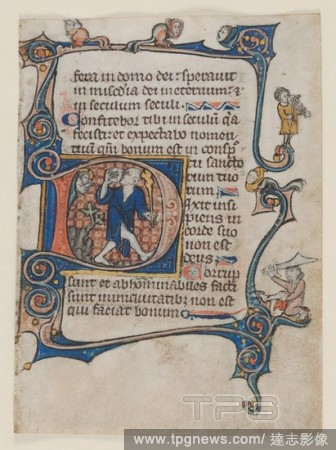 fera in domo dei: speravit
in misedia dei in eternum: ⁊
in seculum seculi.
Confitebor tibi in seculum qa
fecisti: et expectabo nomen
tuum qm bonum est in consp
tu sancto
rum tuo
rum
Dixit insi
piens in
corde suo
non est
deus
Corrup
sunt et abhominabiles facti
sunt in iniquitatib; non est
qui faciat bonum
TPG
www.tpgnews.com/ 達志影像